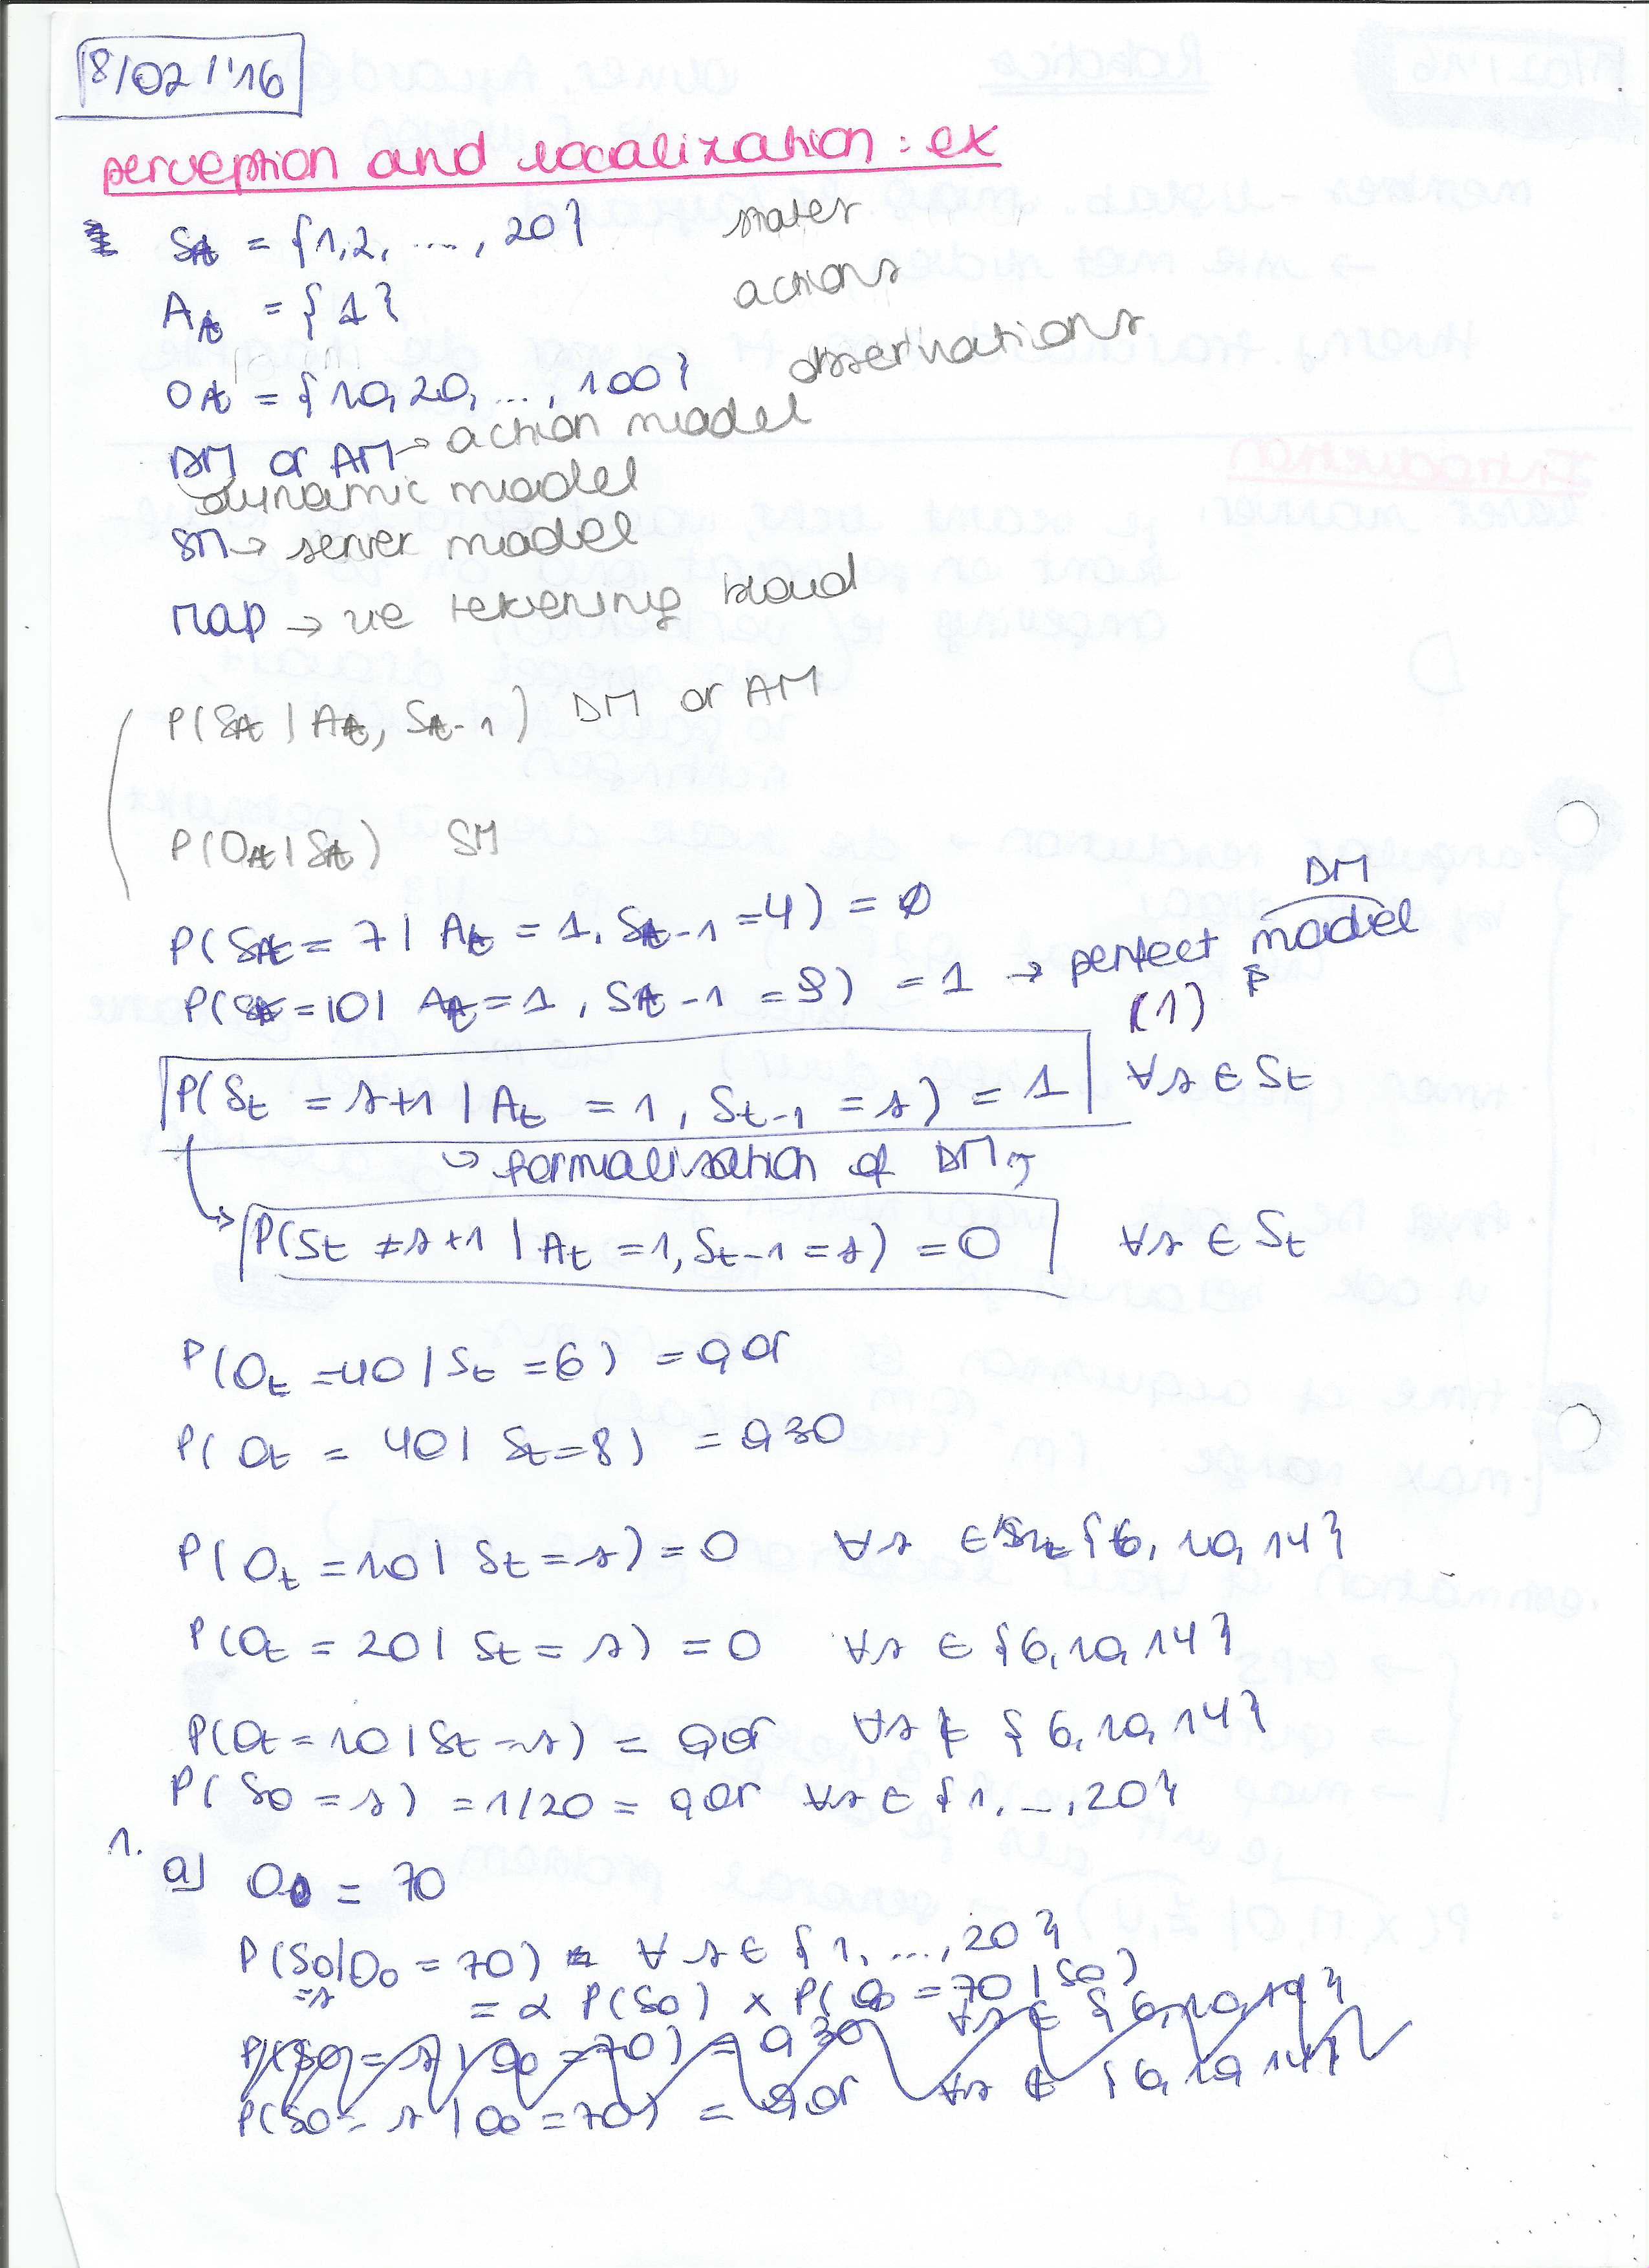 8/02/'16
perception and localization: ex
St = {1,2, ..., 20} states
At = {1} actions
Ot = {10,20, ..., 100} observations
DM or AM → action model
dynamic model
SM → server model
map → zie rekening blad
P(St | At, St-1) DM or AM
P(Ot | St) SM
P(St = 7 | At = 1, St-1 = 4) = 0
DM
P(St = 10 | At = 1, St-1 = 9) = 1 → perfect model
(1)
P(St = s+1 | At = 1, St-1 = s) = 1 ∀s ∈ St
↳ formalization of DM
P(St ≠ s+1 | At = 1, St-1 = s) = 0 ∀s ∈ St
P(Ot = 40 | St = 6) = 0,05
P(Ot = 40 | St = 8) = 0,30
P(Ot = 10 | St = s) = 0 ∀s ∈ {6, 10, 14}
P(Ot = 20 | St = s) = 0 ∀s ∈ {6, 10, 14}
P(Ot = 10 | St = s) = 0,05 ∀s ∉ {6, 10, 14}
P(S0 = s) = 1/20 = 0,05 ∀s ∈ {1, ..., 20}
1.
a) O0 = 70
P(S0 | O0 = 70) ∀s ∈ {1, ..., 20}
=s
= α P(S0) × P(O0 = 70 | S0)
P(S0 = s | O0 = 70) = 0,30 ∀s ∈ {6, 10, 14}
P(S0 = s | O0 = 70) = 0,05 ∀s ∉ {6, 10, 14}